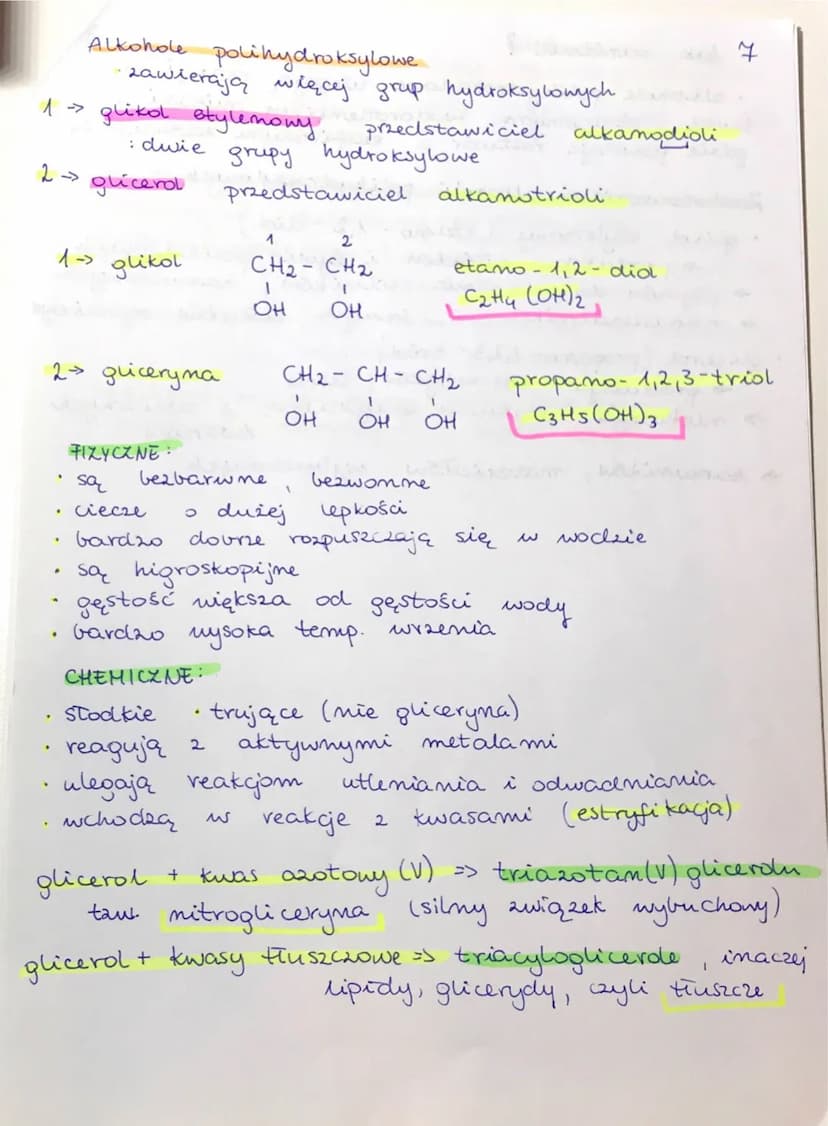 Alkohole polihydroksylowe 7
· zawierają więcej grup hydroksylowych
1 -> glikol etylenowy, przedstawiciel alkanodioli
: dwie grupy hydroksylowe
2 -> glicerol przedstawiciel alkanotrioli
1 2
1 -> glikol CH2 - CH2 etano - 1,2 - diol
OH OH C2H4 (OH)2
2 -> gliceryna CH2 - CH - CH2 propano - 1,2,3 - triol
OH OH OH C3H5(OH)3
FIZYCZNE:
· są bezbarwne, bezwonne
· ciecze o dużej lepkości
· bardzo dobrze rozpuszczają się w wodzie
· są higroskopijne
· gęstość większa od gęstości wody
· bardzo wysoka temp. wrzenia
CHEMICZNE:
· słodkie · trujące (nie gliceryna)
· reagują z aktywnymi metalami
· ulegają reakcjom utleniania i odwadniania
· wchodzą w reakcje z kwasami (estryfikacja)
glicerol + kwas azotowy (V) => triazotan(V) glicerolu
tzw. nitrogliceryna (silny związek wybuchowy)
glicerol + kwasy tłuszczowe => triacyloglicerole, inaczej
lipidy, glicerydy, czyli tłuszcze